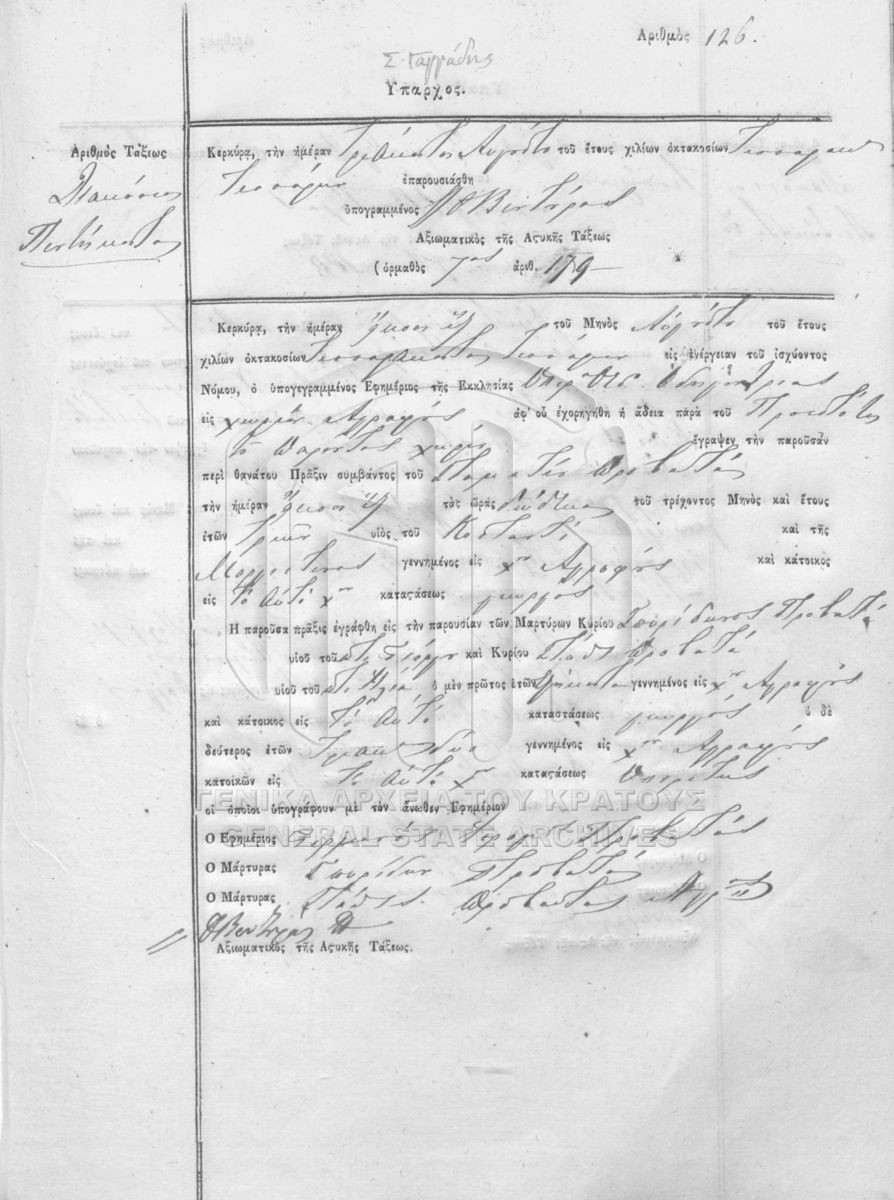 Ἀριθμὸς 126.
Ὕπαρχος.
Ἀριθμὸς Τάξεως
Διακόσια
Πεντήκοντα
Κερκύρα, τὴν ἡμέραν Τριάκοντα Αὐγούστου τοῦ ἔτους χιλίων ὀκτακοσίων Τεσσαράκοντα
Τεσσάρων ἐπαρουσιάσθη
ὑπογραμμένος
Ἀξιωματικὸς τῆς Ἀςυκῆς Τάξεως
(ὁρμαθὸς 7ος ἀριθ. 159
Κερκύρᾳ, τὴν ἡμέραν εἴκοσι ἕξ τοῦ Μηνὸς Αὐγούστου τοῦ ἔτους
χιλίων ὀκτακοσίων Τεσσαράκοντα Τεσσάρων εἰς ἐνέργειαν τοῦ ἰσχύοντος
Νόμου, ὁ ὑπογεγραμμένος Ἐφημέριος τῆς Ἐκκλησίας Ὁδηγητρίας
εἰς χωρίον Ἀγραφούς ἀφ' οὗ ἐχορηγήθη ἡ ἄδεια πὰρὰ τοῦ Προεστότος
τοῦ παρόντος χωρίου ἔγραψεν τὴν παροῦσαν
περὶ θανάτου Πρᾶξιν συμβάντος τοῦ Σταματίου Προβατᾶ
τὴν ἡμέραν εἴκοσι ἕξ τὰς ὥρας δώδεκα τοῦ τρέχοντος Μηνὸς καὶ ἔτους
ἐτῶν τριῶν υἱὸς τοῦ Κοσταντῆ καὶ τῆς
γεννημένος εἰς χον Ἀγραφούς καὶ κάτοικος
εἰς τὸ αὐτὸ χον κατας́άσεως γεωργός
Ἡ παροῦσα πρᾶξις ἐγράφθη εἰς τὴν παρουσίαν τῶν Μαρτύρων Κυρίου Σπυρίδωνος Προβατᾶ
υἱοῦ τοῦ ποτὲ Γιώργη καὶ Κυρίου Στάθη Προβατᾶ
υἱοῦ τοῦ ποτὲ Ἠλία ὁ μὲν πρῶτος ἐτῶν γεννημένος εἰς χον Ἀγραφούς
καὶ κάτοικος εἰς τὸ αὐτὸ καταστάσεως γεωργός ὁ δὲ
δεύτερος ἐτῶν Τριάκοντα δύο γεννημένος εἰς χον Ἀγραφούς
κατοικῶν εἰς τὸ αὐτὸ χον κατας́άσεως ὑπηρέτης
οἱ ὁποῖοι ὑπογράφουν μὲ τὸν ἄνωθεν Ἐφημέριον
Ὁ Ἐφημέριος Προβατᾶς
Ὁ Μάρτυρας Σπυρίδων Προβατᾶς
Ὁ Μάρτυρας Στάθης Προβατᾶς
Ἀξιωματικὸς τῆς Ἀςυκῆς Τάξεως.
ΓΕΝΙΚΑ ΑΡΧΕΙΑ ΤΟΥ ΚΡΑΤΟΥΣ
GENERAL STATE ARCHIVES